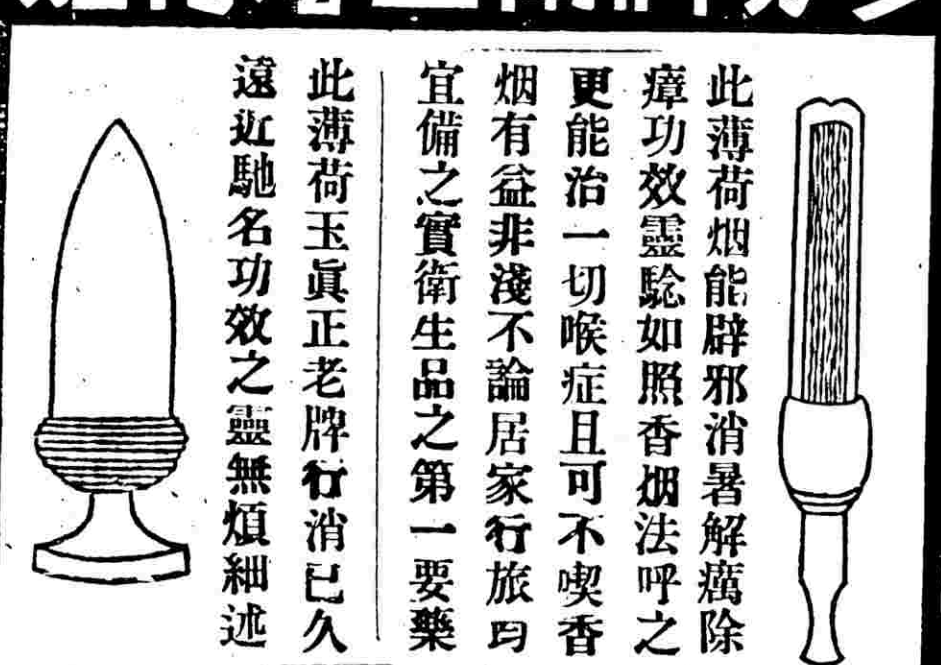 此薄荷烟能辟邪消暑解癘除
瘴功效靈騐如照香烟法呼之
更能治一切喉症且可不喫香
烟有益非淺不論居家行旅均
宜備之實衛生品之第一要藥
此薄荷玉眞正老牌行消已久
遠近馳名功效之靈無煩細述